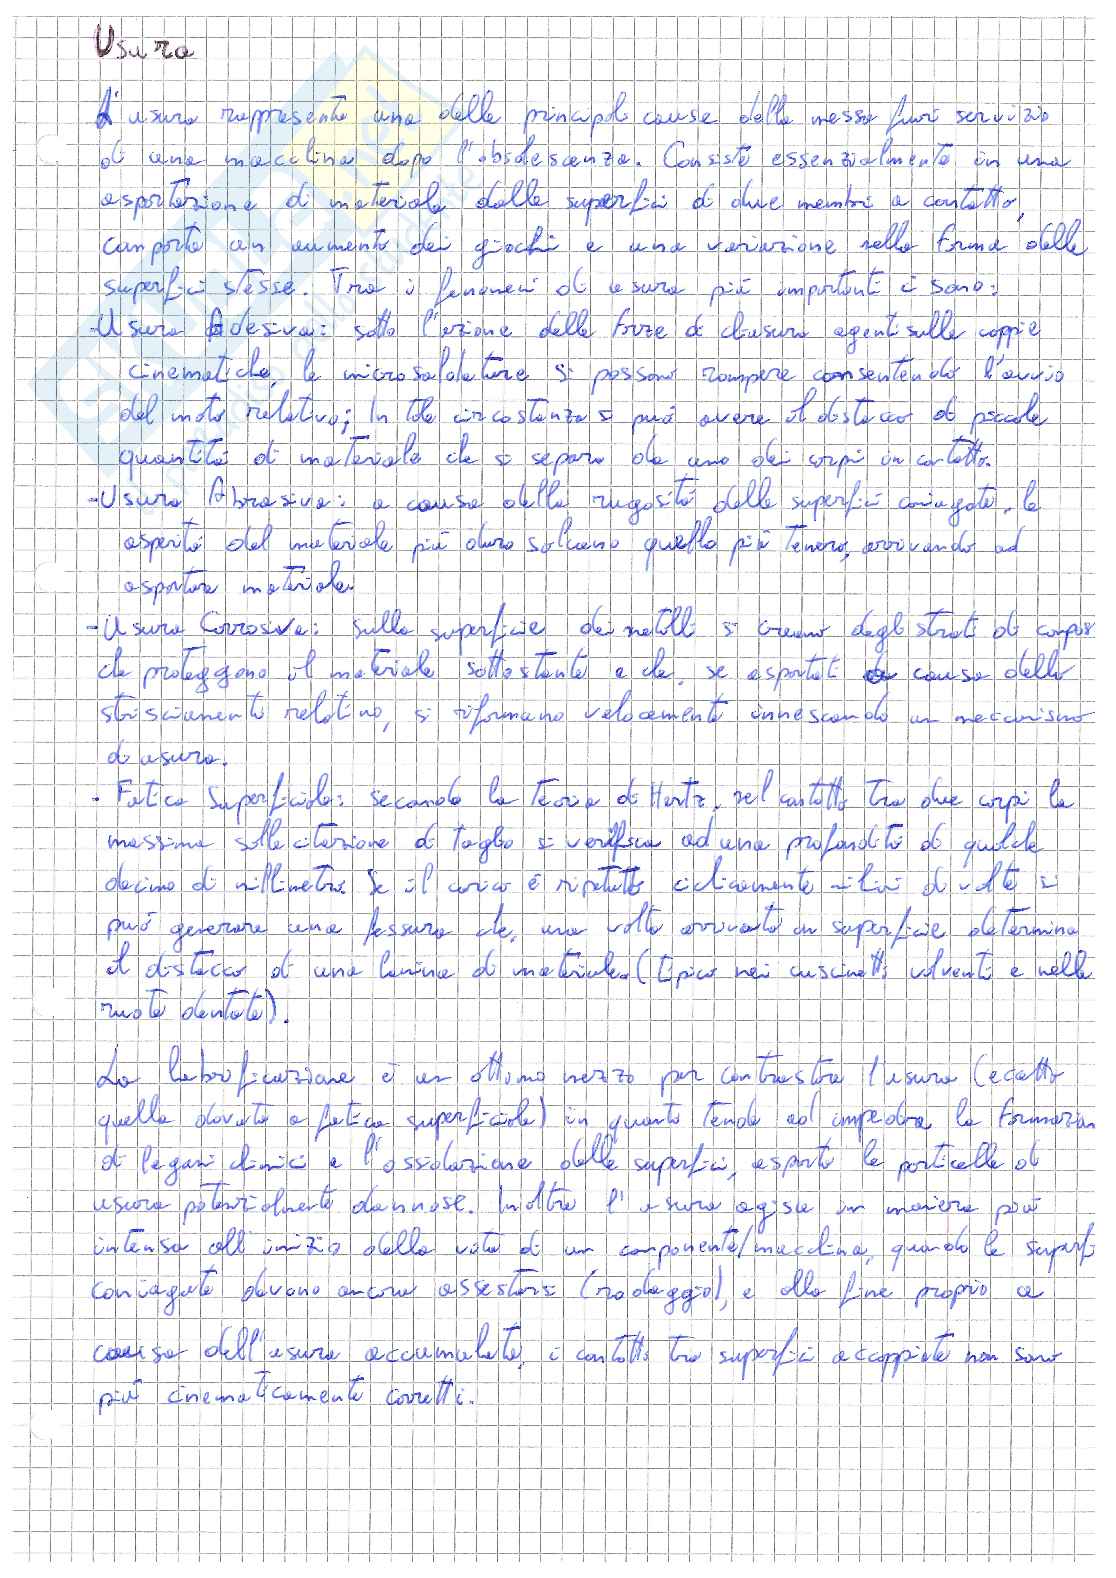 Usura
L'usura rappresenta una delle principali cause della messa fuori servizio
di una macchina dopo l'obsolescenza. Consiste essenzialmente in una
asportazione di materiale dalle superfici di due membri a contatto,
comporta un aumento dei giochi e una variazione nella forma delle
superfici stesse. Tra i fenomeni di usura più importanti ci sono:
-Usura Adesiva: sotto l'azione delle forze di chiusura agenti sulle coppie
cinematiche, le microsaldature si possono rompere consentendo l'avvio
del moto relativo; In tale circostanza si può avere il distacco di piccole
quantità di materiale che si separa da uno dei corpi in contatto.
-Usura Abrasiva: a causa della rugosità delle superfici coniugate, le
asperità del materiale più duro solcano quello più tenero, arrivando ad
asportare materiale.
-Usura Corrosiva: sulla superficie dei metalli si creano degli strati di
che proteggono il materiale sottostante e che, se asportati a causa dello
strisciamento relativo, si riformano velocemente innescando un meccanismo
di usura.
- Fatica Superficiale: secondo la teoria di Hertz, nel contatto tra due corpi la
massima sollecitazione di taglio si verifica ad una profondità di qualche
decimo di millimetro. Se il carico è ripetuto ciclicamente milioni di volte si
può generare una fessura che, una volta arrivata in superficie determina
il distacco di una lamina di materiale. (tipico nei cuscinetti volventi e nelle
ruote dentate).
La lubrificazione è un ottimo mezzo per contrastare l'usura (eccetto
quella dovuta a fatica superficiale) in quanto tende ad impedire la formazion
di legami chimici e l'ossidazione delle superfici, asporta le particelle di
usura potenzialmente dannose. Inoltre l'usura agisce in maniera più
intensa all'inizio della vita di un componente/macchina, quando le superfi
coniugate devono ancora assestarsi (rodaggio), e alla fine proprio a
causa dell'usura accumulata, i contatti tra superfici accoppiate non sono
più cinematicamente corretti.